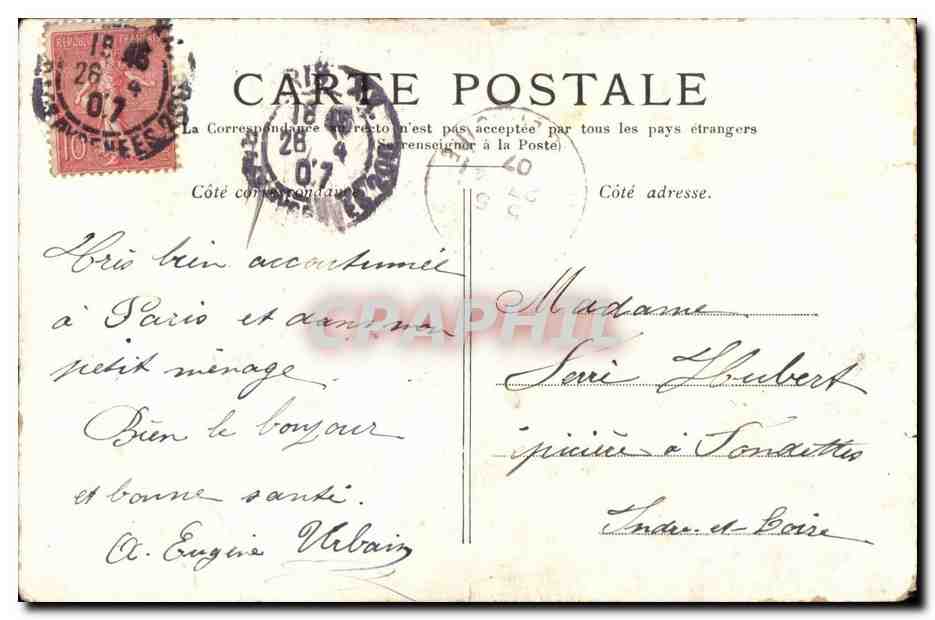 REPUB FRANÇAISE
18 45
26 4
07
PYRENEES
10
18 45
26 4
07
CARTE POSTALE
La Correspondance au recto n'est pas acceptée par tous les pays étrangers
(Se renseigner à la Poste)
Côté correspondance
Côté adresse.
07
Très bien accoutumée
à Paris et dans mon
petit ménage.
Bien le bonjour
et bonne santé.
A. Eugène Urbain
Madame
Serré Hubert
épicière à Fondettes
Indre-et-Loire
CRAPHIL